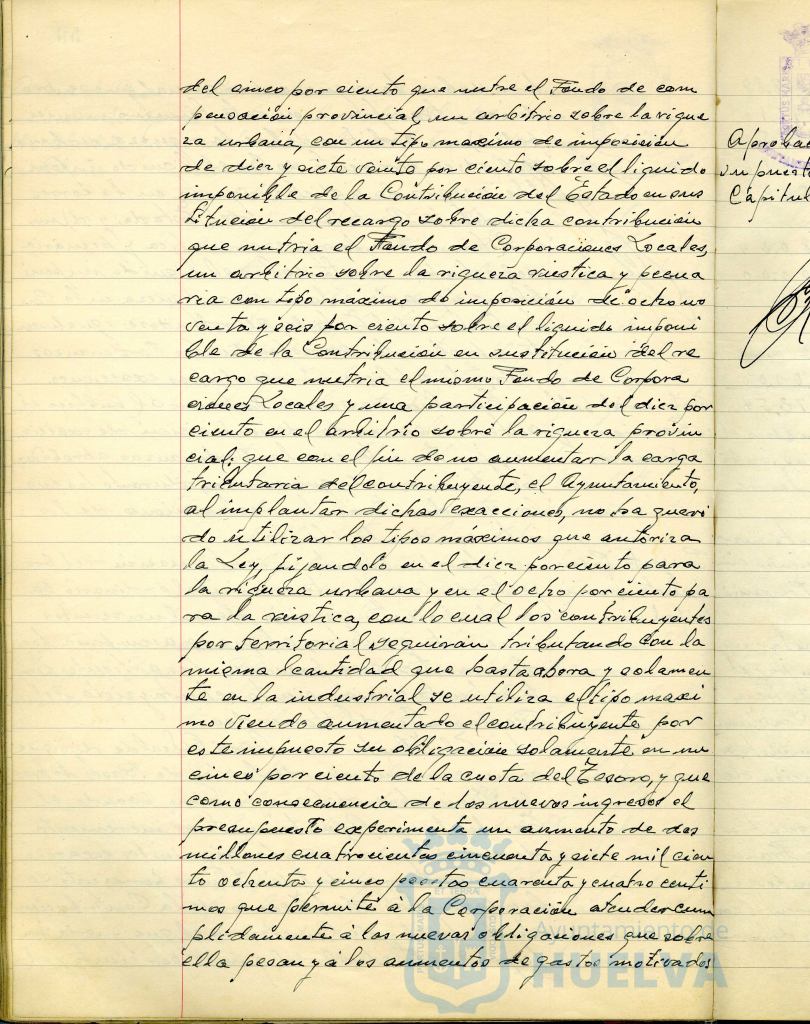 del cinco por ciento que nutre el Fondo de com
pensación provincial, un arbitrio sobre la rique
za urbana, con un tipo maximo de imposición
de diez y siete veinte por ciento sobre el liquido
imponible de la Contribución del Estado en sus
titución del recargo sobre dicha contribución
que nutria el Fondo de Corporaciones Locales,
un arbitrio sobre la riqueza rústica y pecua
ria con tipo máximo de imposición de ocho no
venta y seis por ciento sobre el liquido imponi
ble de la Contribución en sustitución del re
cargo que nutria el mismo Fondo de Corpora
ciones Locales y una participación del diez por
ciento en el arbitrio sobre la riqueza provin
cial; que con el fin de no aumentar la carga
tributaria del contribuyente, el Ayuntamiento,
al implantar dichas exacciones, no ha queri
do utilizar los tipos máximos que autoriza
la Ley, fijandolo en el diez por ciento para
la riqueza urbana y en el ocho por ciento pa
ra la rústica, con lo cual los contribuyentes
por territorial seguirán tributando con la
misma cantidad que hasta ahora y solamen
te en la industrial se utiliza el tipo maxi
mo viendo aumentado el contribuyente por
este impuesto su obligación solamente en un
cinco por ciento de la cuota del Tesoro, y que
como consecuencia de los nuevos ingresos el
presupuesto experimenta un aumento de dos
millones cuatrocientas cincuenta y siete mil cien
to ochenta y cinco pesetas cuarenta y cuatro centi
mos que permite á la Corporación atender cum
plidamente á las nuevas obligaciones que sobre
ella pesan y á los aumentos de gastos motivados
Aprobac
supuest
Capitul
Ayuntamiento de
HUELVA